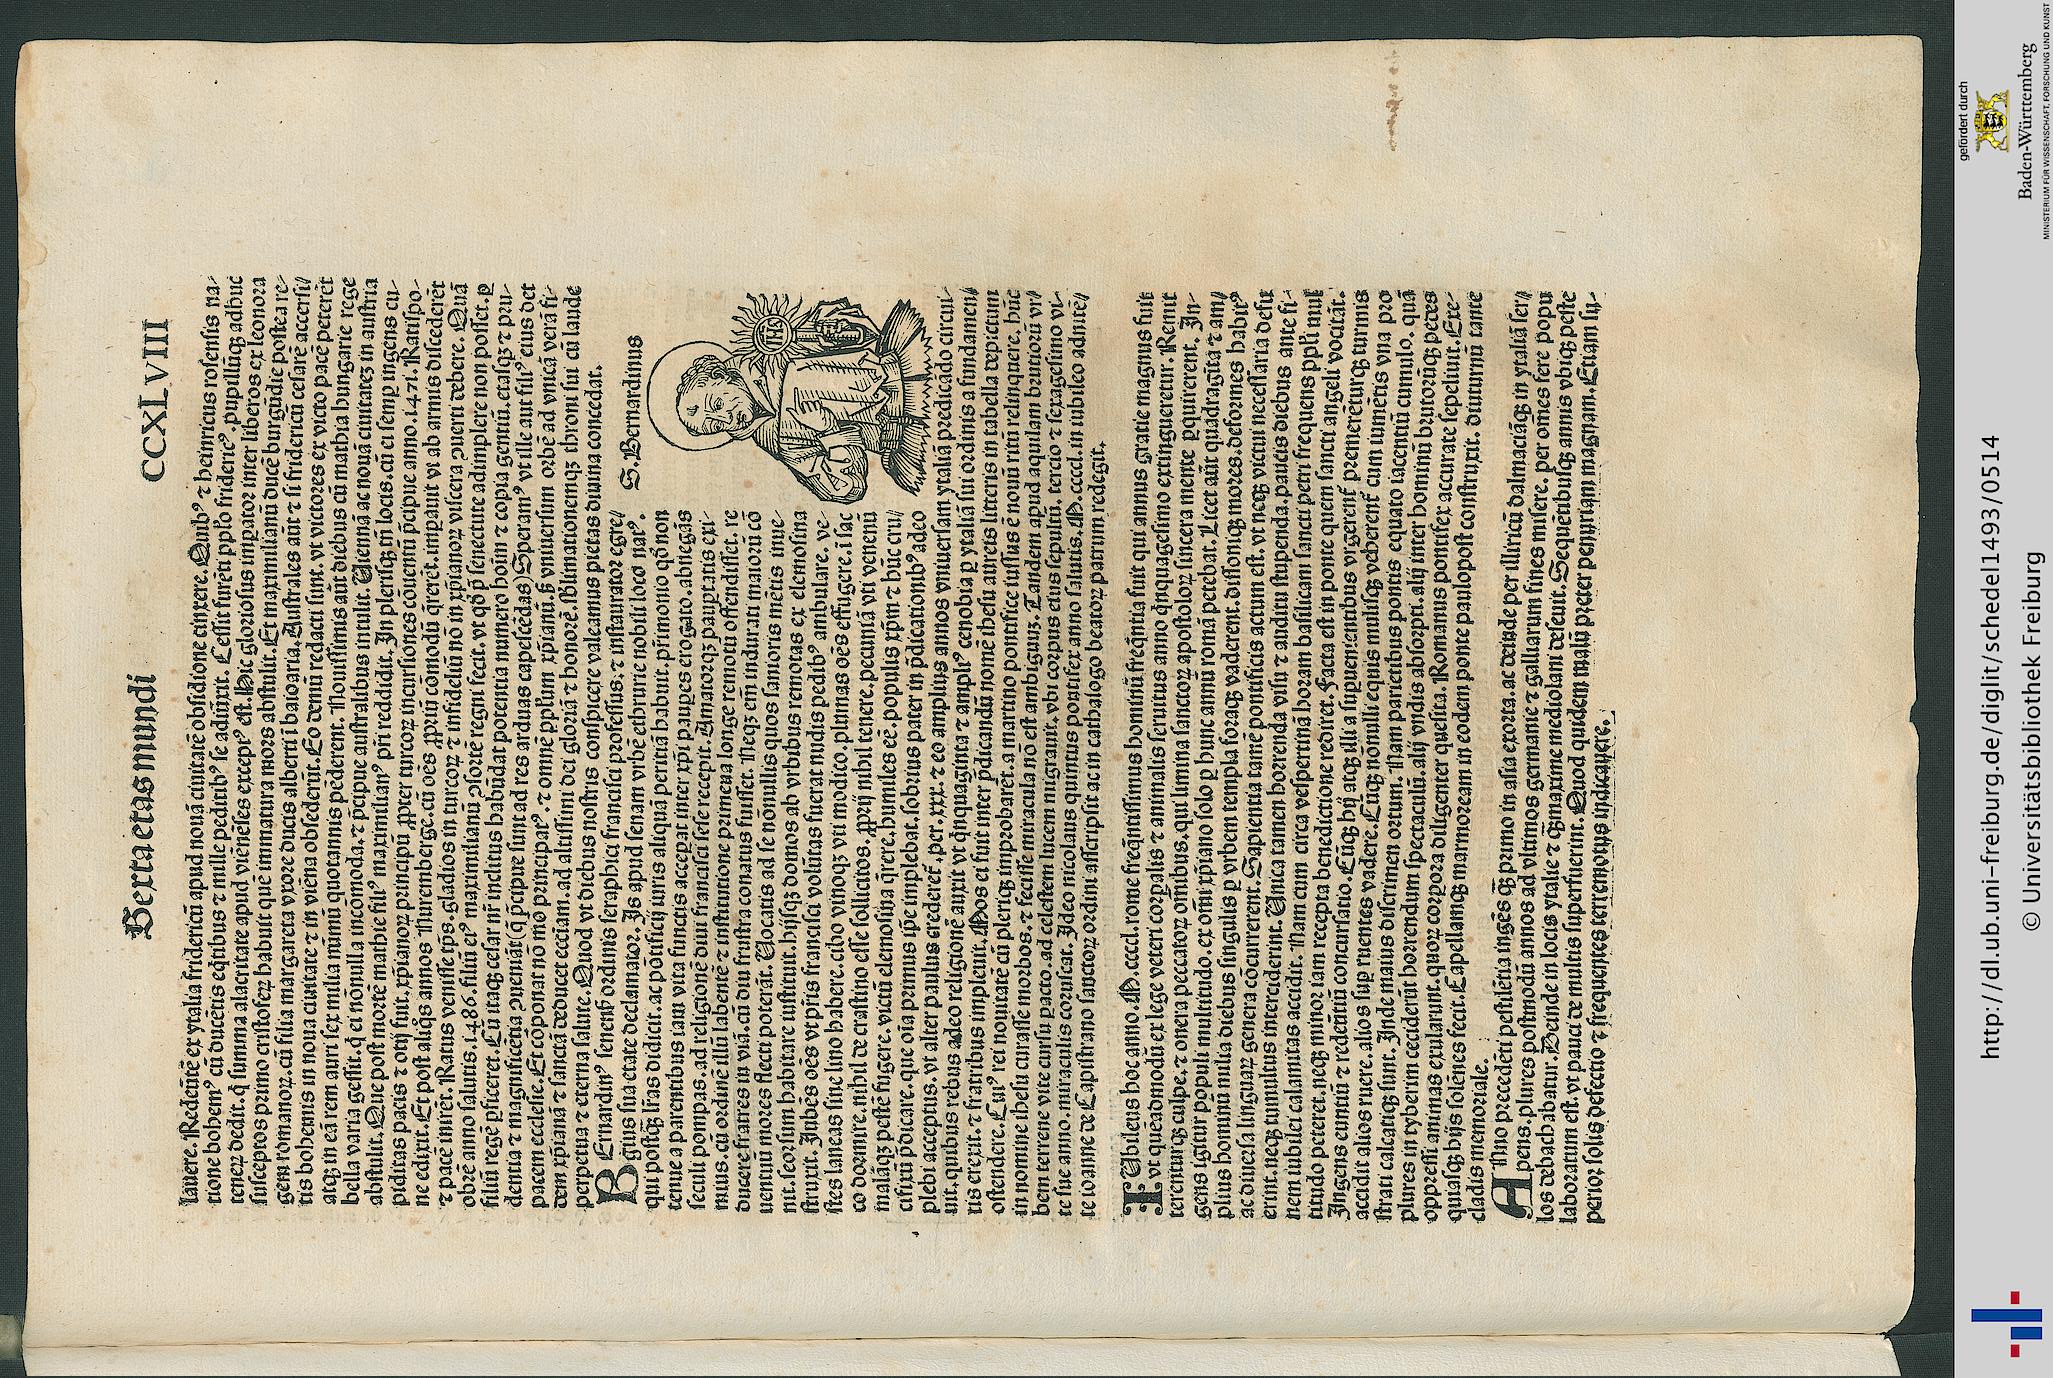 Sexta etas mundi
CCXLVIII
lauere. Redeūtē ex ytalia fridericū apud nouā ciuitatē obsidione cinxere. Quibꝰ ⁊ heinricus rosensis na⸗
tione bohemꝰ cū ducētis equitibus ⁊ mille peditibꝰ se adiūxit. Cessit furēti pplo fridericꝰ. pupillūqꝫ adhuc
teneꝝ dedit. q̄ summa alacritate apud viēneses exceptꝰ est. Hic gloriosus impator inter liberos ex leonora
susceptos primo cristofeꝝ habuit quē immatura mors abstulit. Et maximilianū ducē burgūdie postea re⸗
gem romanoꝝ. cū filia margareta vxore ducis alberti ī bauaria. Australes aūt ⁊ si fridericū cesarē accersi⸗
tis bohemis in noua ciuitate ⁊ in viēna obsederūt. Eo demū redacti sunt. vt victores ex victo pacē peterēt
atqꝫ in eā rem auri sex milia numū quotannis pēderent. Nouissimis aūt diebus cū mathia hungarie rege
bella varia gessit. q̇ ei nōnulla incomoda. ⁊ p̄cipue australibus intulit. Uiennā ac nouā ciuitatez in austria
abstulit. Que post mortē mathie filiꝰ maximilianꝰ pr̄i reddidit. In plerisqꝫ tn̄ locis. cū ei semp ingens cu⸗
piditas pacis ⁊ ocij fuit. xp̄ianoꝝ principū ꝓpter turcoꝝ incursiones cōuentū p̄cipue anno. 1471. Ratispo⸗
ne edixit. Et post aliq̄s annos Nuremberge. cū oēs ꝓpriū comodū q̄rerēt. impauit vt ab armis discederēt
⁊ pacē inirēt. Ratus venisse tp̄s. gladios in turcoꝝ ⁊ infideliū nō in xp̄ianoꝝ viscera ꝯuerti debere. Quā
obrē anno salutis. 1486. filiū eiꝰ maximilianū ꝯsortē regni fecit. vt qd̄ p̄ senectute adimplere non posset. ꝑ
filiū regē ꝑficeret. Cū itaqꝫ cesar nr̄ inclitus habūdat potentia numero hoīm ⁊ copia gentiū. etasqꝫ ⁊ pru⸗
dentia ⁊ magnificētia ꝯueniāt (q̄ p̄cipue sunt ad res arduas capescēdas) Speramꝰ vt ille aut filiꝰ eius det
pacem ecclesie. Et cōponat no mō principatꝰ. ⁊ omnē pplum xp̄ianū. sꝫ vniuersum orbē ad vnicā verā fi⸗
dem xp̄ianā ⁊ sanctā deducet ecc̄iam. ad altissimi dei gloriā ⁊ honorē. sublimationemqꝫ throni sui cū laude
perpetua ⁊ eterna salute. Quod vt diebus nostris conspicere valeamus pietas diuina concedat.
S. Bernardinus
BErnardinꝰ senensis ordinis seraphici francisci professus: ⁊ instaurator egre⸗
gius sua etate declamator. Is apud senam vrbē ethrurie nobili loco natꝰ.
qui postqꝫ lr̄as didicit. ac pontificij iuris aliquā peritiā habuit. pr̄imonio qd̄ non
tenue a parentibus iam vita functis acceperat inter xp̄i paupes erogato. abnegās
seculi pompas. ad religionē diui francisci sese recepit. Amatorqꝫ paupertatis exi⸗
mius. cū ordinē illū labentē ⁊ institutione primeua longe remotū offendisset. re
ducere fratres in viā. cū diu frustra conatus fuisset. Neqꝫ em̄ indurati maiorū cō
uentuū mores flecti poterāt. Uocatis ad se nōnullis quos sanioris mētis inue⸗
nit. seorsum habitare instituit. hijsqꝫ domos ab vrbibus remotas ex elemosina
struxit. Jubēs oēs vt pr̄is francisci volūtas fuerat nudis pedibꝰ ambulare. ve⸗
stes laneas sine lino habere. cibo vinoqꝫ vti modico. plumas oēs effugere. ī sac
co dormire. nihil de crastino esse sollicitos. ꝓprij nihil tenere. pecuniā vti venenū
malāqꝫ pestē fugere. victū elemosina q̄rere. humiles eē. populis xp̄m ⁊ hūc cru⸗
cifixū p̄dicare. que oīa primus ip̄e implebat. sobrius pater in p̄dicationibꝰ adeo
plebi acceptus. vt alter paulus crederet̄. per. xxx. ⁊ eo amplius annos vniuersam ytaliā predicādo circui⸗
uit. quibus rebus adeo religionē auxit vt q̄nquaginta ⁊ ampliꝰ cenobia ꝑ ytaliā sui ordinis a fundamen⸗
tis erexit. ⁊ fratribus impleuit. Mos ei fuit inter p̄dicandū nomē ihesu aureis litteris in tabella depictum
ostendere. Cuiꝰ rei nouitatē cū pleriqꝫ improbarēt. a martino pontifice iussus ē nouū ritū relinquere. hūc
in nomine ihesu curasse morbos. ⁊ fecisse miracula nō est ambiguuꝫ. Tandem apud aquilam brutiorū vr⸗
bem terrene vite cursu pacto. ad celestem lucem migrauit. vbi corpus eius sepultū. tercio ⁊ sexagesimo vi⸗
te sue anno. miraculis coruscat. Ideo nicolaus quintus pontifex anno salutis. M.cccc l. in iubileo adnitē⸗
te ioanne de Capistrano sanctoꝝ ordini asscripsit ac in cathalogo beatoꝝ patrum redegit.
IUbileus hoc anno. M.cccc l. rome freq̄ntissimus hominū freq̄ntia fuit qui annus gratie magnus fuit
vt quēadmodū ex lege veteri corꝑalis ⁊ animalis seruitus anno q̇nquagesimo extingueretur. Remit
terenturqꝫ culpe. ⁊ onera peccatoꝝ omnibus. qui limina sanctoꝝ apostoloꝝ sincera mente ꝑquirerent. In⸗
gens igitur populi multitudo. ex omī xp̄iano solo ꝑ hunc annū romā petebat. Licet aūt quadragīta ⁊ am⸗
plius hominū milia diebus singulis ꝑ vrbem templa foraqꝫ vaderent. dissoniqꝫ mores. deformes habitꝰ
ac diuersa linguaꝝ genera cōcurrerent. Sapientia tamē pontificis actum est. vt neqꝫ victui necessaria defu
erint. neqꝫ tumultus intercideriut. Unica tamen horrenda visu ⁊ auditu stupenda. paucis diebus ante fi⸗
nem iubilei calamitas accidit. Nam cum circa vespertinā horam basilicam sancti petri frequens ppl̓i mul
titudo peteret. neqꝫ minor iam recepta benedictione rediret. Facta est in ponte quem sancti angeli vocitāt.
Ingens euntiū ⁊ redeūtiū concursatio. Cūqꝫ hij atqꝫ illi a supuenientibus vrgerent̄ premerēturqꝫ turmis
accidit alios ruere. alios suꝑ ruentes vadere. Cūqꝫ nōnulli equis mulisqꝫ veherent̄ cum iumētis vna pro
strati calcatiqꝫ sunt. Inde maius discrimen ortum. Nam parietibus pontis equato iacentiū cumulo. quā
plures in tyberim ceciderūt horrendum spectaculū. alij vndis absorpti. alij inter hominū brutorūqꝫ pedes
oppressi animas exularunt. quoꝝ corpora diligenter quesita. Romanus pontifex accurate sepeliuit. Exe⸗
quiasqꝫ hijs solēnes fecit. Capellamqꝫ marmoream in eodem ponte paulopost construxit. diuturnū tante
cladis memoriale.
ANno precedēti pestilētia ingēs qꝫ primo in asia exorta. ac deinde per illiricū dalmaciāqꝫ in ytaliā ser⸗
pens. plures postmodū annos ad vltimos germanie ⁊ galliarum fines misere. per omēs fere popu
los debachabatur. Deinde in locis ytalie ⁊ qꝫmaxime mediolani deseuit. Sequētibusqꝫ annis vbiqꝫ peste
laboratum est. vt pauci de multis superfuerint. Quod quidem malū preter penuriam magnam. Etiam su⸗
perior solis defectio ⁊ frequentes terremotus indicauere.
gefördert durch
Baden-Württemberg
MINISTERIUM FÜR WISSENSCHAFT, FORSCHUNG UND KUNST
http://dl.ub.uni-freiburg.de/diglit/schedel1493/0514
© Universitätsbibliothek Freiburg